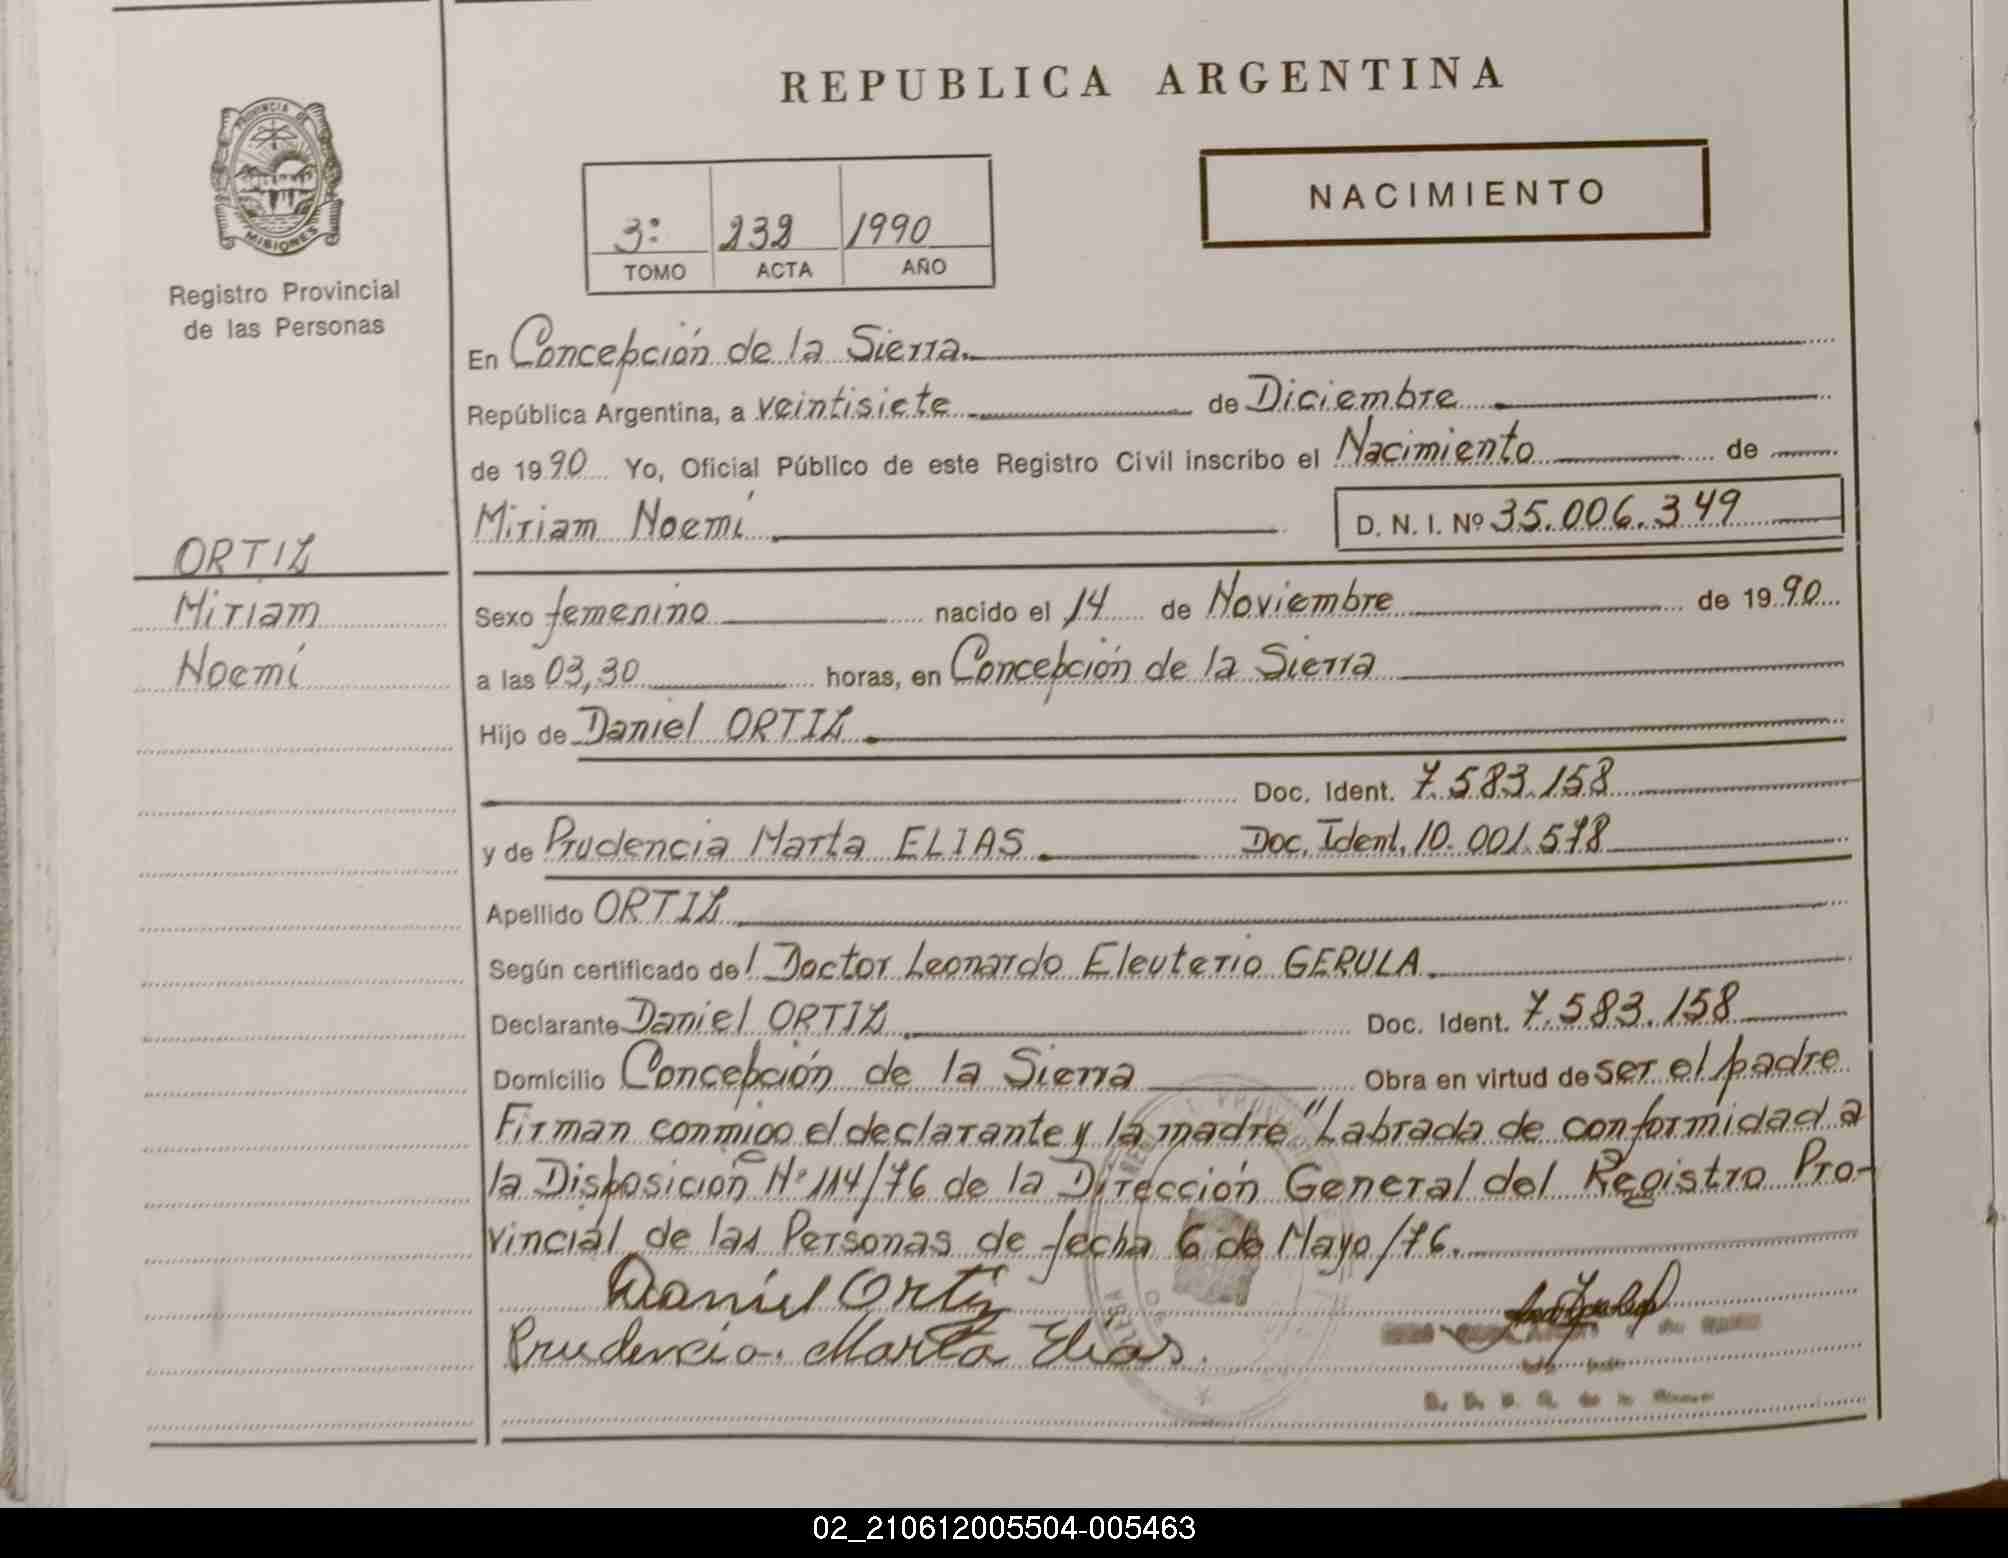 REPUBLICA ARGENTINA
PROVINCIA DE
MISIONES
NACIMIENTO
3º 232 1990
TOMO ACTA AÑO
Registro Provincial
de las Personas
En Concepción de la Sierra.
República Argentina, a veintisiete de Diciembre
de 1990 Yo, Oficial Público de este Registro Civil inscribo el Nacimiento de
Miriam Noemí D. N. I. Nº 35.006.349
ORTIZ
Miriam
Noemí
Sexo femenino nacido el 14 de Noviembre de 1990
a las 03,30 horas, en Concepción de la Sierra
Hijo de Daniel ORTIZ
Doc. Ident. 7.583.158
y de Prudencia Marta ELIAS Doc. Ident. 10.001.578
Apellido ORTIZ
Según certificado del Doctor Leonardo Eleuterio GERULA.
Declarante Daniel ORTIZ Doc. Ident. 7.583.158
Domicilio Concepción de la Sierra Obra en virtud de ser el padre
Firman conmigo el declarante y la madre "Labrada de conformidad a
la Disposición Nº 114/76 de la Dirección General del Registro Pro-
vincial de las Personas de fecha 6 de Mayo/76.
Daniel Ortiz
Prudencia Marta Elias.
02_210612005504-005463